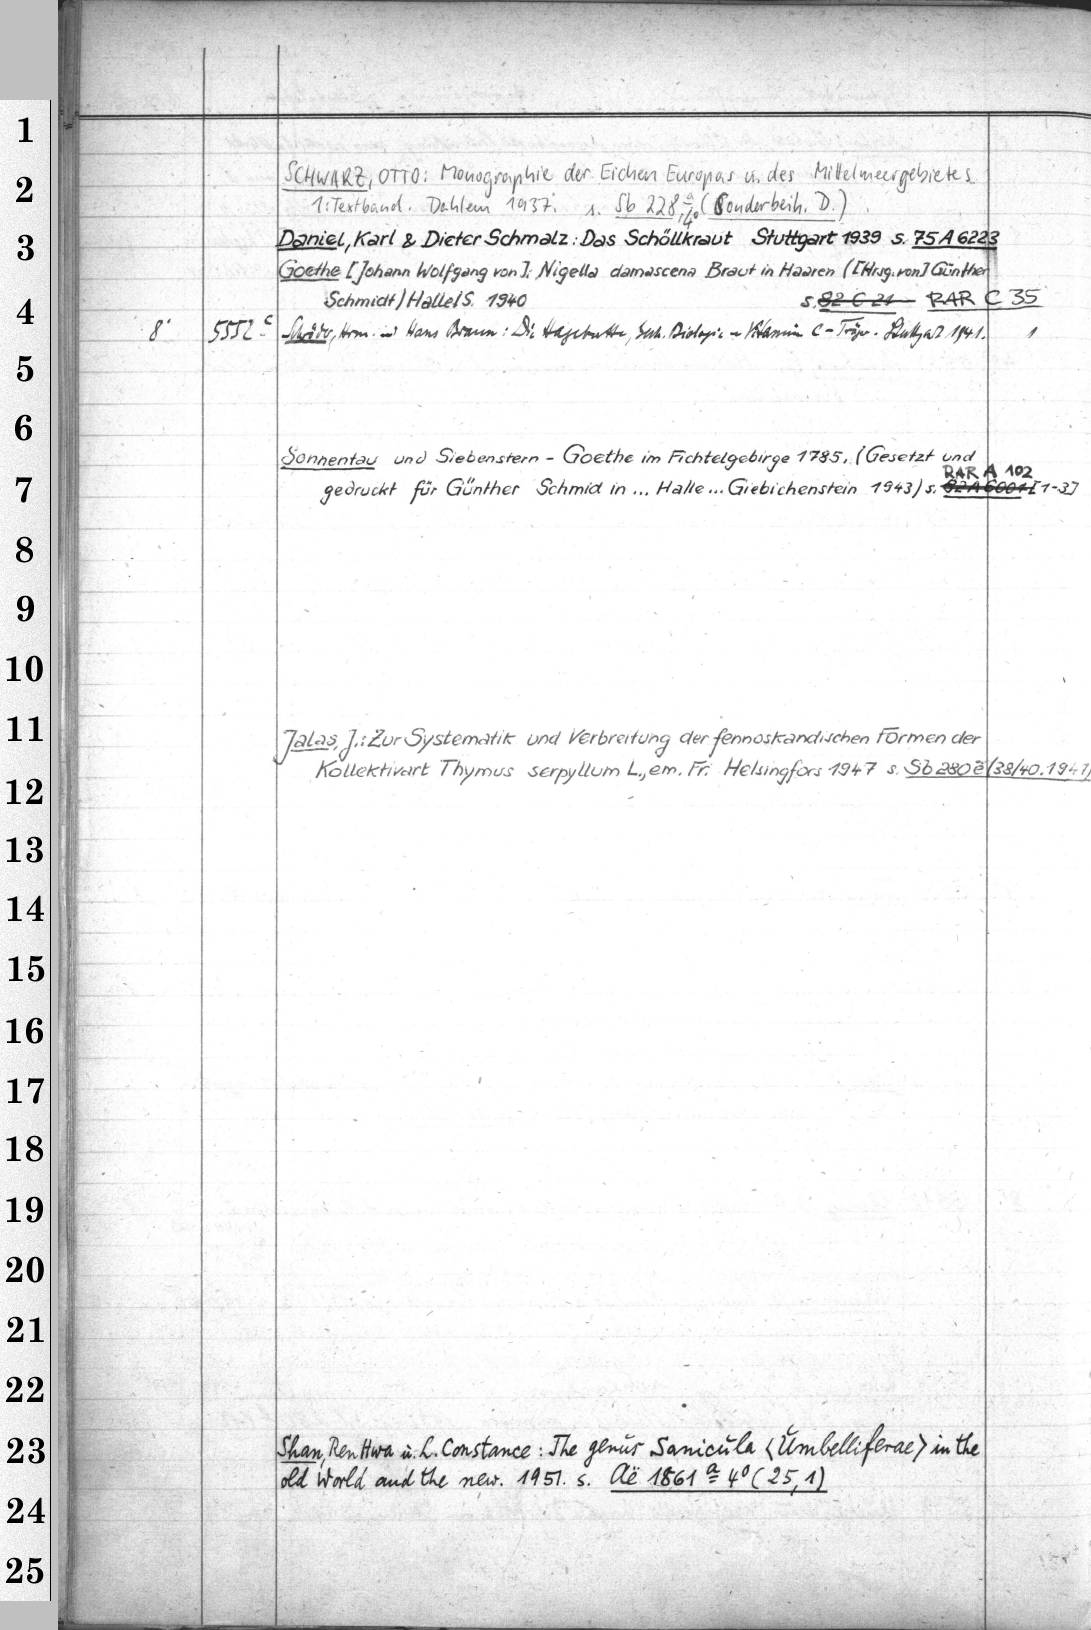 1
2
3
4
5
6
7
8
9
10
11
12
13
14
15
16
17
18
19
20
21
22
23
24
25
SCHWARZ, OTTO: Monographie der Eichen Europas u. des Mittelmeergebietes
1: Textband. Dahlem 1937. s. Sb 228, a/4° (Sonderbeih. D.)
Daniel, Karl & Dieter Schmalz: Das Schöllkraut Stuttgart 1939 s. 75 A 6223
Goethe [Johann Wolfgang von]: Nigella damascena Braut in Haaren ([Hrsg. von] Günther
Schmidt) Halle/S. 1940 s. 82 C 21 RAR C 35
8° 5552 c Hans Braun: Die Hagebutte, Biologie Vitamin C-Träger. Stuttgart 1941. 1
Sonnentau und Siebenstern - Goethe im Fichtelgebirge 1785. (Gesetzt und
RAR A 102
gedruckt für Günther Schmid in ... Halle ... Giebichenstein 1943) s. 82 A 6001 [1-3]
Jalas, J.: Zur Systematik und Verbreitung der fennoskandischen Formen der
Kollektivart Thymus serpyllum L., em. Fr. Helsingfors 1947 s. Sb 280 e (38/40.1947)
Shan, Ren Hwa u. L. Constance: The genus Sanicula <Umbelliferae> in the
old World and the new. 1951. s. Aë 1861 a 4° (25,1)